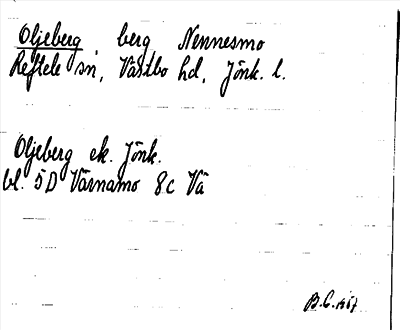 Oljeberg, berg Nennesmo
Reftele sn, Västbo hd, Jönk. l.
Oljeberg ek. Jönk.
bl. 5D Värnamo 8c Vä
B.C. 1967